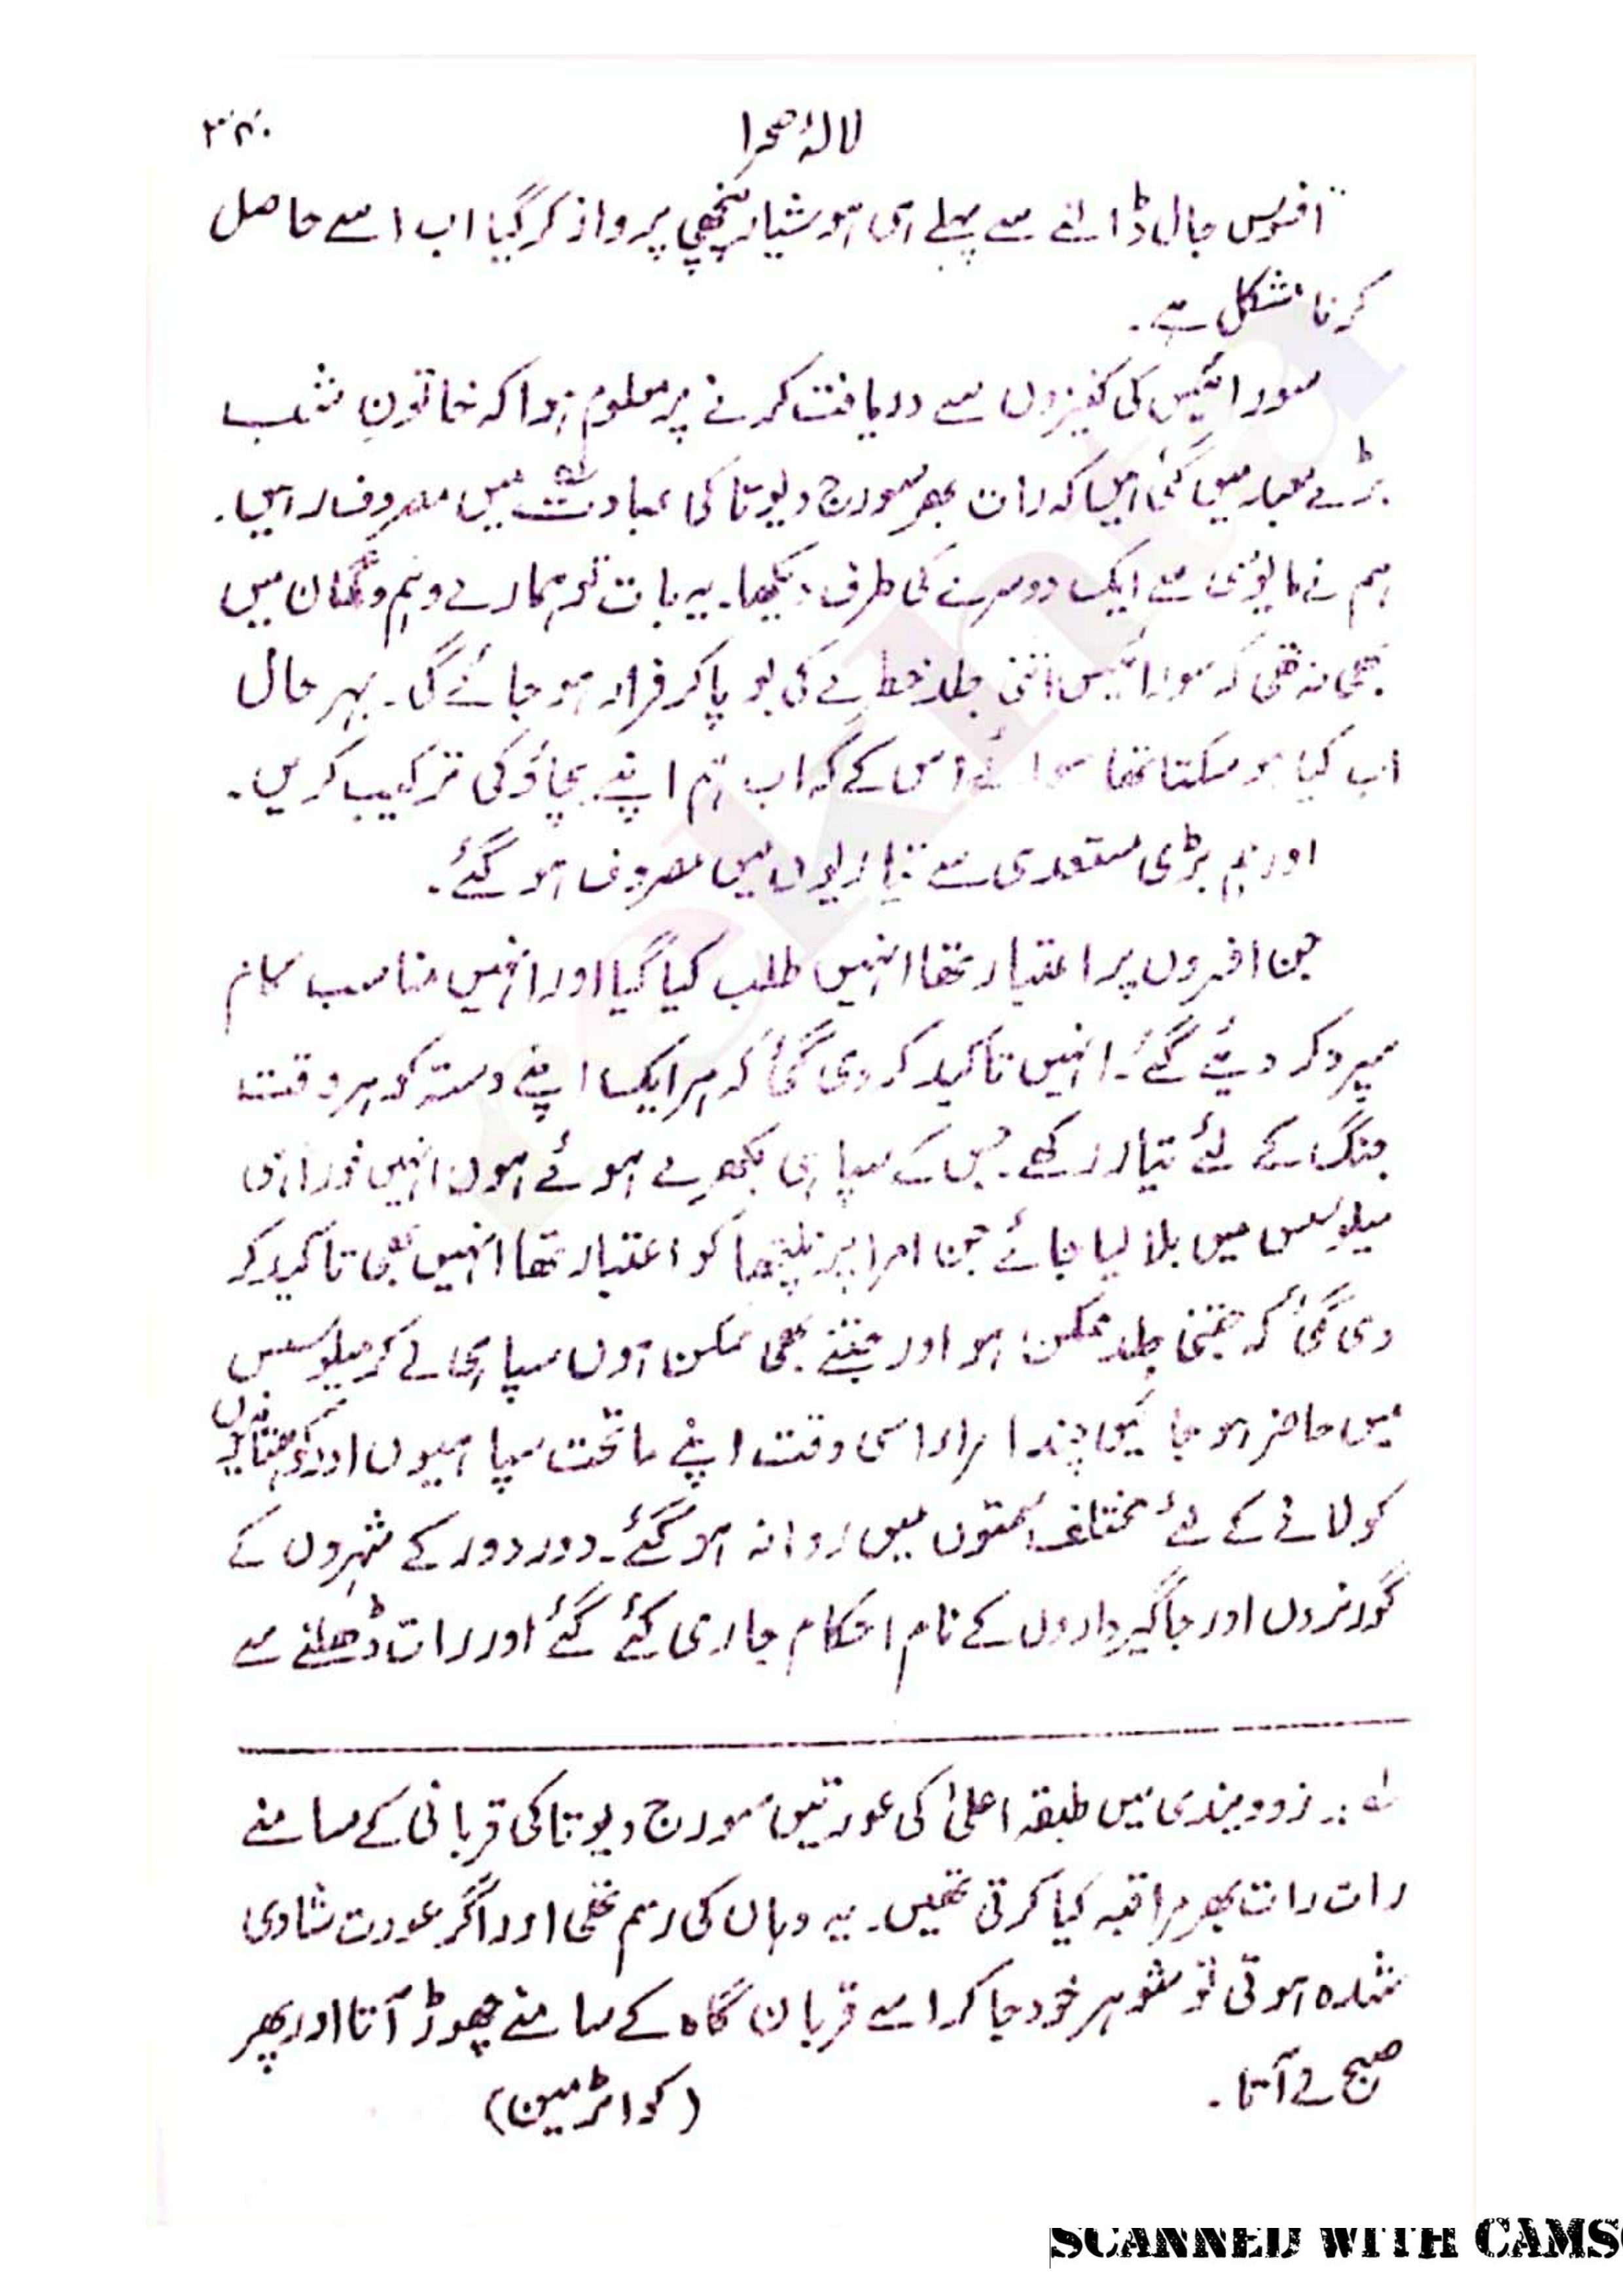 لالۂ صحرا
افسوس جال ڈالنے سے پہلے ہی ہوشیار پنچھی پرواز کر گیا اب اسے حاصل
کرنا مشکل ہے۔
سورائیس کی کنیزوں سے دریافت کرنے پر معلوم ہوا کہ خاتونِ شب
بڑے معبار میں گئی ہیں کہ رات بھر سورج دیوتا کی عبادت میں مصروف رہیں۔
ہم نے مایوسی سے ایک دوسرے کی طرف دیکھا۔ یہ بات تو ہمارے وہم و گمان میں
بھی نہ تھی کہ سورائیس اتنی جلد خطرے کی بو پا کر فرار ہو جائے گی۔ بہر حال
اب کیا ہو سکتا تھا سوائے اس کے کہ اب ہم اپنے بچاؤ کی ترکیب کریں۔
اور ہم بڑی مستعدی سے تیاریوں میں مصروف ہو گئے۔
جن افسروں پر اعتبار تھا انہیں طلب کیا گیا اور انہیں مناسب کام
سپرد کر دیئے گئے۔ انہیں تاکید کر دی گئی کہ ہر ایک اپنے دستہ کو ہر وقت
جنگ کے لئے تیار رکھے۔ جس کے سپاہی بکھرے ہوئے ہوں انہیں فوراً ہی
میلوسس میں بلا لیا جائے جن امرا پر نلپتھا کو اعتبار تھا انہیں بھی تاکید کر
دی گئی کہ جتنی جلد ممکن ہو اور جتنے بھی ممکن ہوں سپاہی لے کر میلوسس
میں حاضر ہو جائیں چند امرا اسی وقت اپنے ماتحت سپاہیوں اور کوہستانیوں
کو لانے کے لئے مختلف سمتوں میں روانہ ہو گئے۔ دور دور کے شہروں کے
گورنروں اور جاگیرداروں کے نام احکام جاری کئے گئے اور رات ڈھلنے سے
لہ :۔ زوویندی میں طبقہ اعلیٰ کی عورتیں سورج دیوتا کی قربانی کے سامنے
رات رات بھر مراقبہ کیا کرتی تھیں۔ یہ وہاں کی رسم تھی اور اگر عورت شادی
شدہ ہوتی تو شوہر خود جا کر اسے قربان گاہ کے سامنے چھوڑ آتا اور پھر
صبح لے آتا۔ (کواٹرمین)
SCANNED WITH CAMS